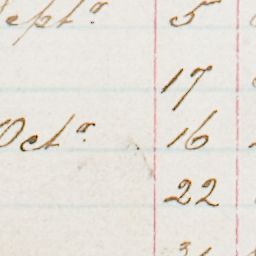 Septr 5
17
Octr 16
22
31